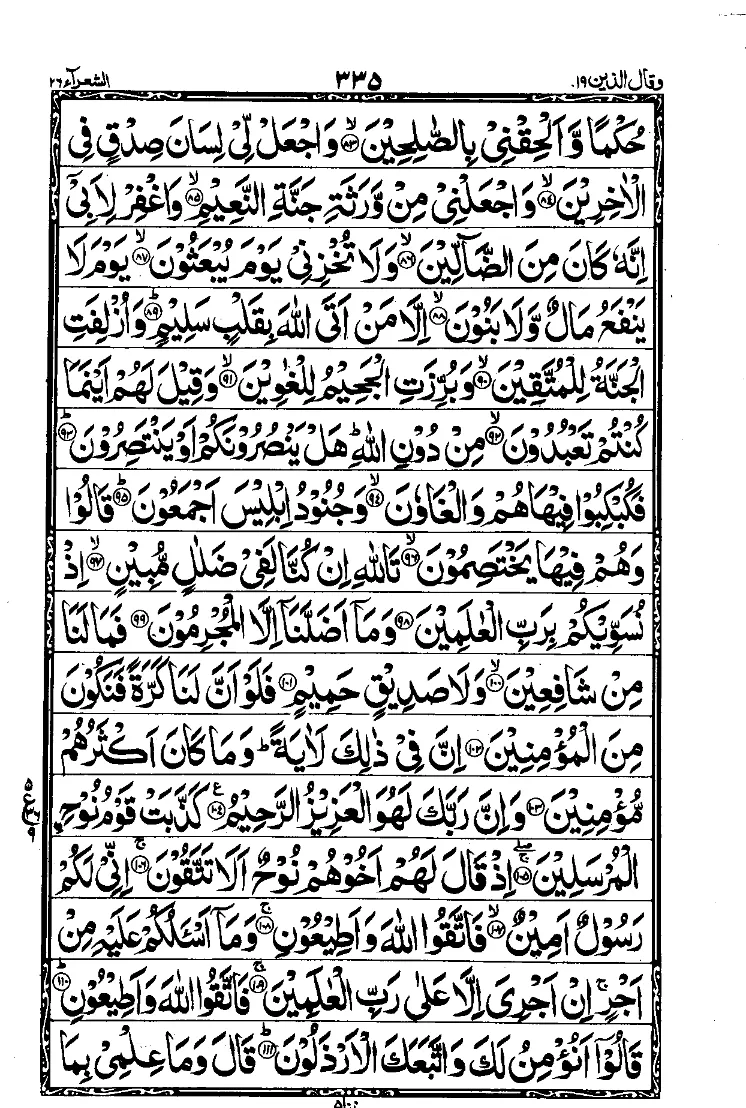 وقال الذین ۱۹ ۳۳۵ الشعرآء ۲۶
حُكْمًا وَّ اَلْحِقْنِیْ بِالصّٰلِحِیْنَ ﴿۸۳﴾ۙ وَ اجْعَلْ لِّیْ لِسَانَ صِدْقٍ فِی
الْاٰخِرِیْنَ ﴿۸۴﴾ۙ وَ اجْعَلْنِیْ مِنْ وَّرَثَةِ جَنَّةِ النَّعِیْمِ ﴿۸۵﴾ۙ وَ اغْفِرْ لِاَبِیْۤ
اِنَّهٗ كَانَ مِنَ الضَّآلِّیْنَ ﴿۸۶﴾ۙ وَ لَا تُخْزِنِیْ یَوْمَ یُبْعَثُوْنَ ﴿۸۷﴾ۙ یَوْمَ لَا
یَنْفَعُ مَالٌ وَّ لَا بَنُوْنَ ﴿۸۸﴾ۙ اِلَّا مَنْ اَتَی اللّٰهَ بِقَلْبٍ سَلِیْمٍ ﴿۸۹﴾ؕ وَ اُزْلِفَتِ
الْجَنَّةُ لِلْمُتَّقِیْنَ ﴿۹۰﴾ۙ وَ بُرِّزَتِ الْجَحِیْمُ لِلْغٰوِیْنَ ﴿۹۱﴾ۙ وَ قِیْلَ لَهُمْ اَیْنَمَا
كُنْتُمْ تَعْبُدُوْنَ ﴿۹۲﴾ۙ مِنْ دُوْنِ اللّٰهِ ؕ هَلْ یَنْصُرُوْنَكُمْ اَوْ یَنْتَصِرُوْنَ ﴿۹۳﴾ؕ
فَكُبْكِبُوْا فِیْهَا هُمْ وَ الْغَاوٗنَ ﴿۹۴﴾ۙ وَ جُنُوْدُ اِبْلِیْسَ اَجْمَعُوْنَ ﴿۹۵﴾ؕ قَالُوْا
وَ هُمْ فِیْهَا یَخْتَصِمُوْنَ ﴿۹۶﴾ۙ تَاللّٰهِ اِنْ كُنَّا لَفِیْ ضَلٰلٍ مُّبِیْنٍ ﴿۹۷﴾ۙ اِذْ
نُسَوِّیْكُمْ بِرَبِّ الْعٰلَمِیْنَ ﴿۹۸﴾ وَ مَاۤ اَضَلَّنَاۤ اِلَّا الْمُجْرِمُوْنَ ﴿۹۹﴾ فَمَا لَنَا
مِنْ شَافِعِیْنَ ﴿۱۰۰﴾ۙ وَ لَا صَدِیْقٍ حَمِیْمٍ ﴿۱۰۱﴾ فَلَوْ اَنَّ لَنَا كَرَّةً فَنَكُوْنَ
مِنَ الْمُؤْمِنِیْنَ ﴿۱۰۲﴾ اِنَّ فِیْ ذٰلِكَ لَاٰیَةً ؕ وَ مَا كَانَ اَكْثَرُهُمْ
مُّؤْمِنِیْنَ ﴿۱۰۳﴾ وَ اِنَّ رَبَّكَ لَهُوَ الْعَزِیْزُ الرَّحِیْمُ ﴿۱۰۴﴾ع كَذَّبَتْ قَوْمُ نُوْحِ
اِ۟لْمُرْسَلِیْنَ ﴿۱۰۵﴾ۚۖ اِذْ قَالَ لَهُمْ اَخُوْهُمْ نُوْحٌ اَلَا تَتَّقُوْنَ ﴿۱۰۶﴾ۚ اِنِّیْ لَكُمْ
رَسُوْلٌ اَمِیْنٌ ﴿۱۰۷﴾ۙ فَاتَّقُوا اللّٰهَ وَ اَطِیْعُوْنِ ﴿۱۰۸﴾ۚ وَ مَاۤ اَسْـَٔلُكُمْ عَلَیْهِ مِنْ
اَجْرٍ ۚ اِنْ اَجْرِیَ اِلَّا عَلٰی رَبِّ الْعٰلَمِیْنَ ﴿۱۰۹﴾ۚ فَاتَّقُوا اللّٰهَ وَ اَطِیْعُوْنِ ﴿۱۱۰﴾ؕ
قَالُوْۤا اَنُؤْمِنُ لَكَ وَ اتَّبَعَكَ الْاَرْذَلُوْنَ ﴿۱۱۱﴾ؕ قَالَ وَ مَا عِلْمِیْ بِمَا